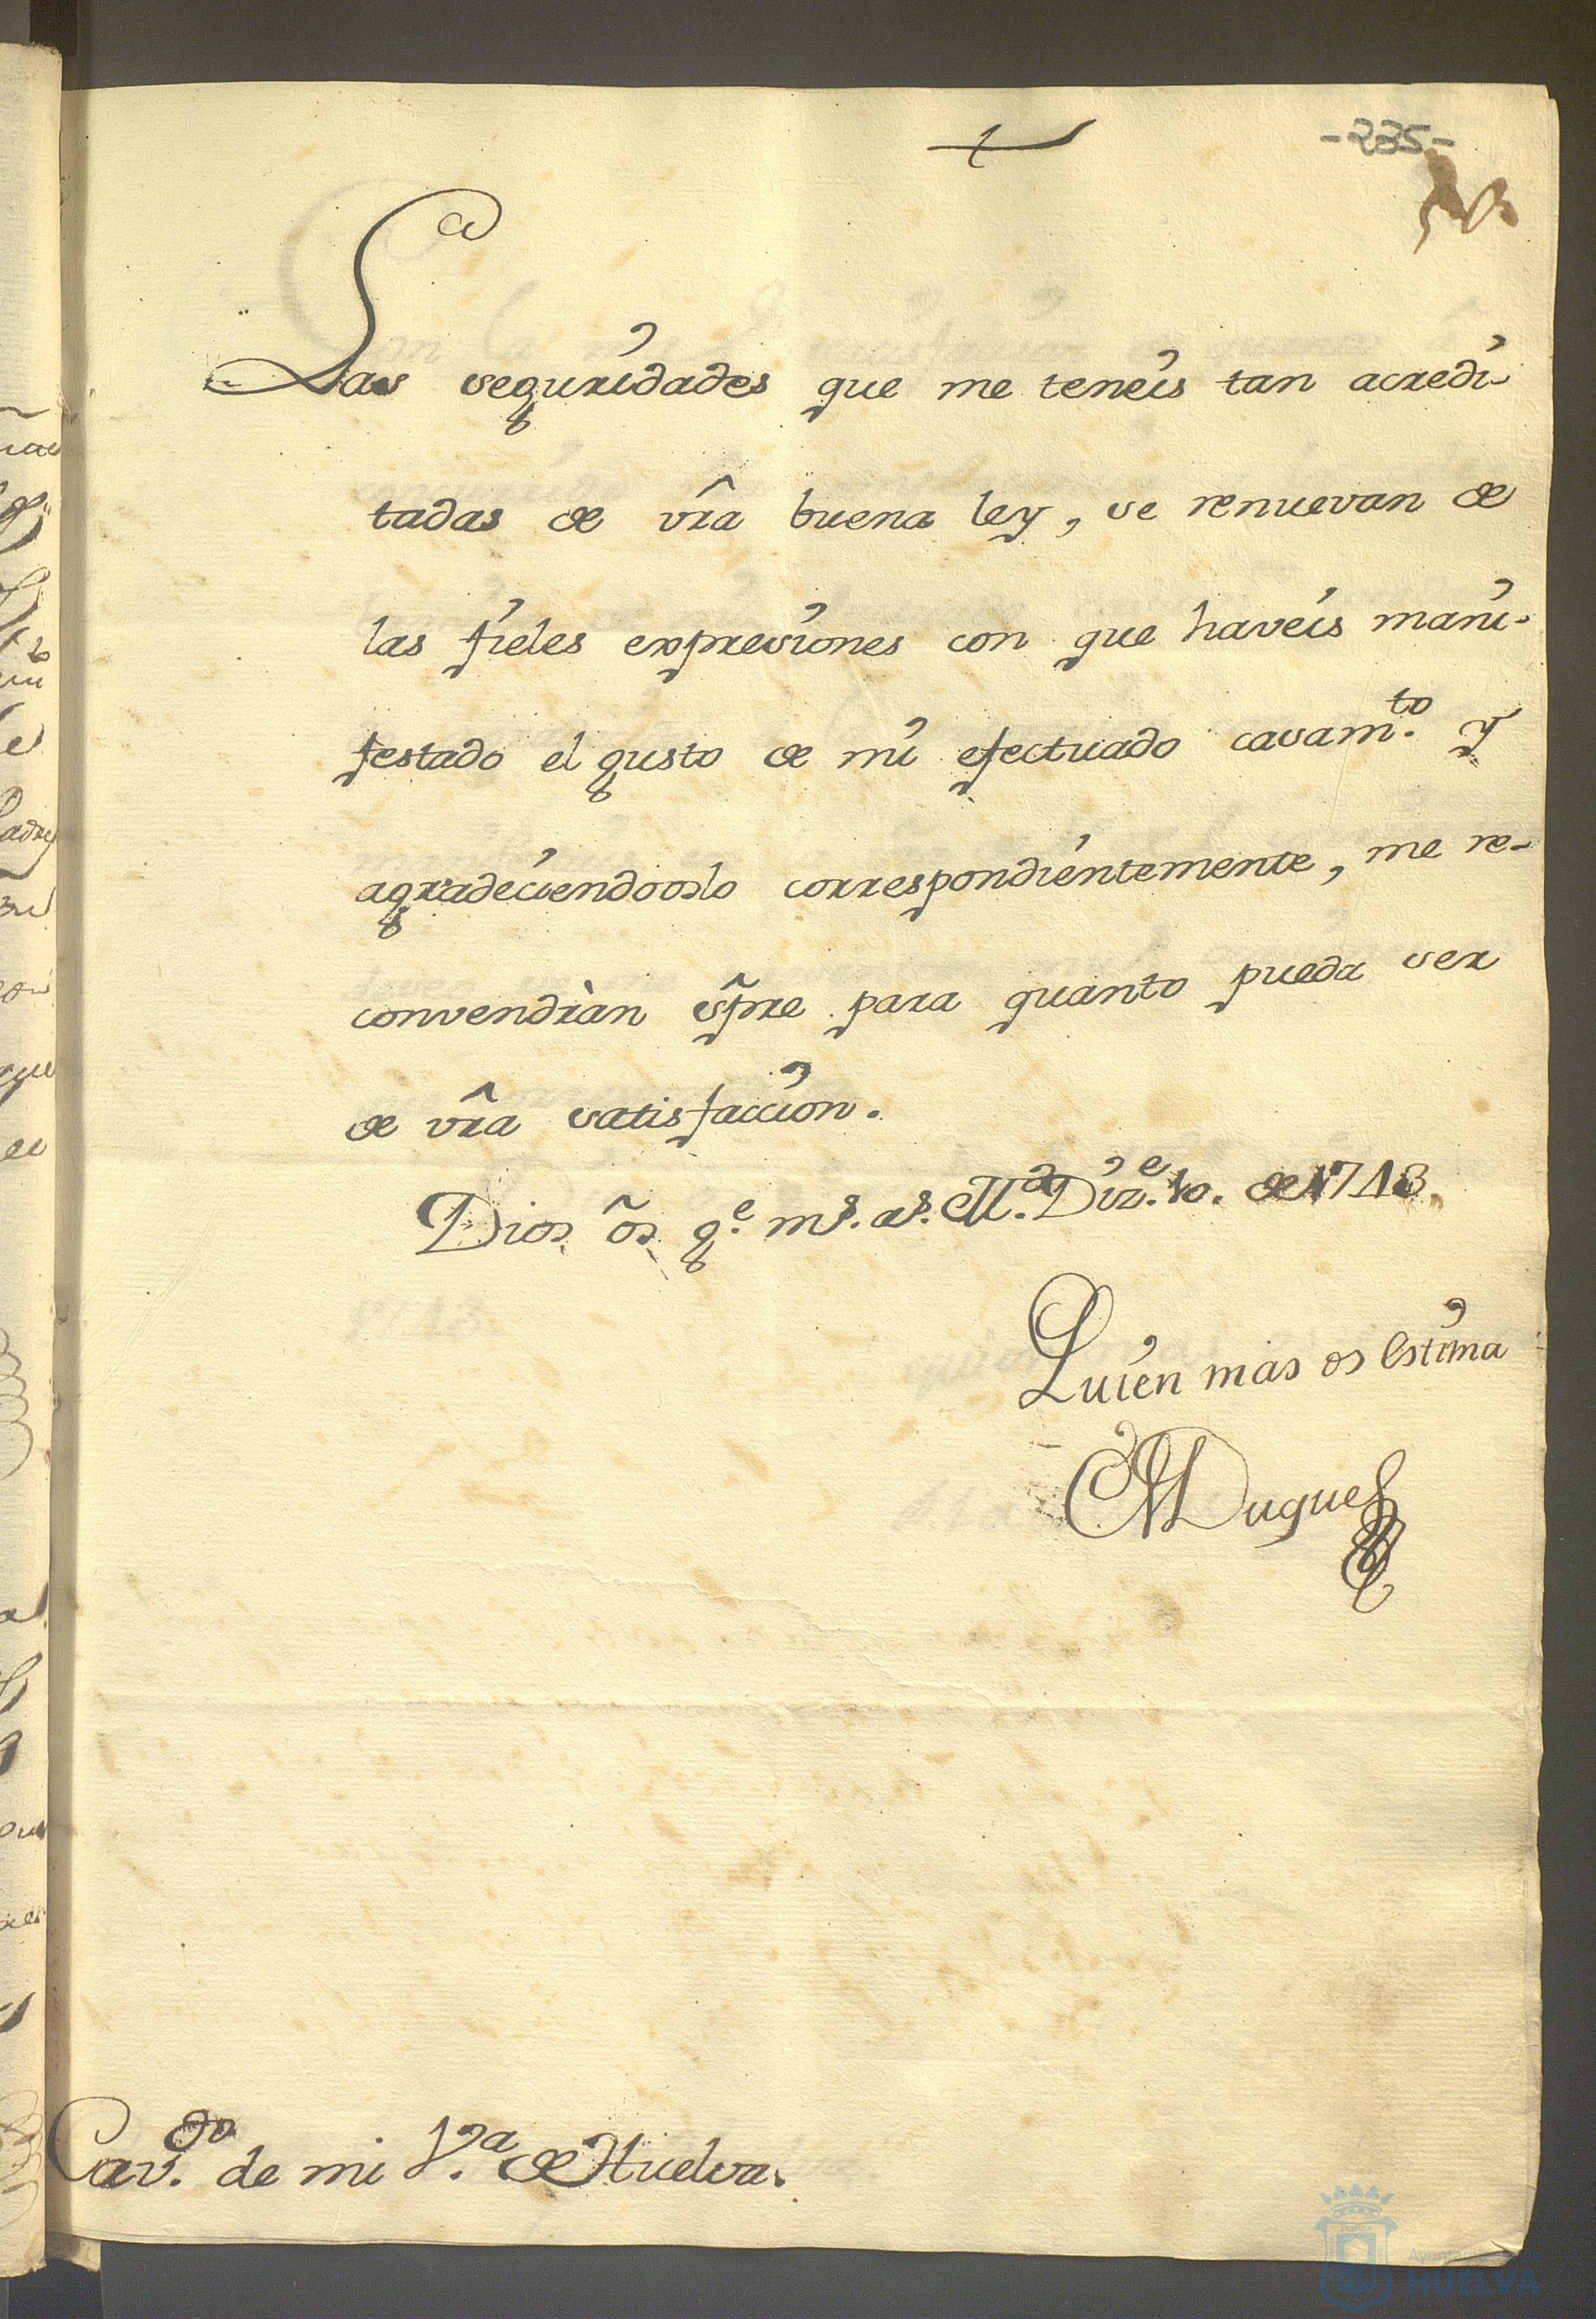 -235-
Las seguridades que me teneis tan acredi-
tadas de vrã buena ley, se renuevan de
las fieles expresiones con que haveis mani-
festado el gusto de mi efectuado casam.to y
agradeciendooslo correspondientemente, me re-
convendràn sp̃re para quanto pueda ser
de vrã satisfaccion.
Dios os g.e m.s a.s M.d Diz.e 10. de 1743.
Quien mas os estima
El Duque
Cav.do de mi V.a de Huelva.
Ayuntamiento de
HUELVA